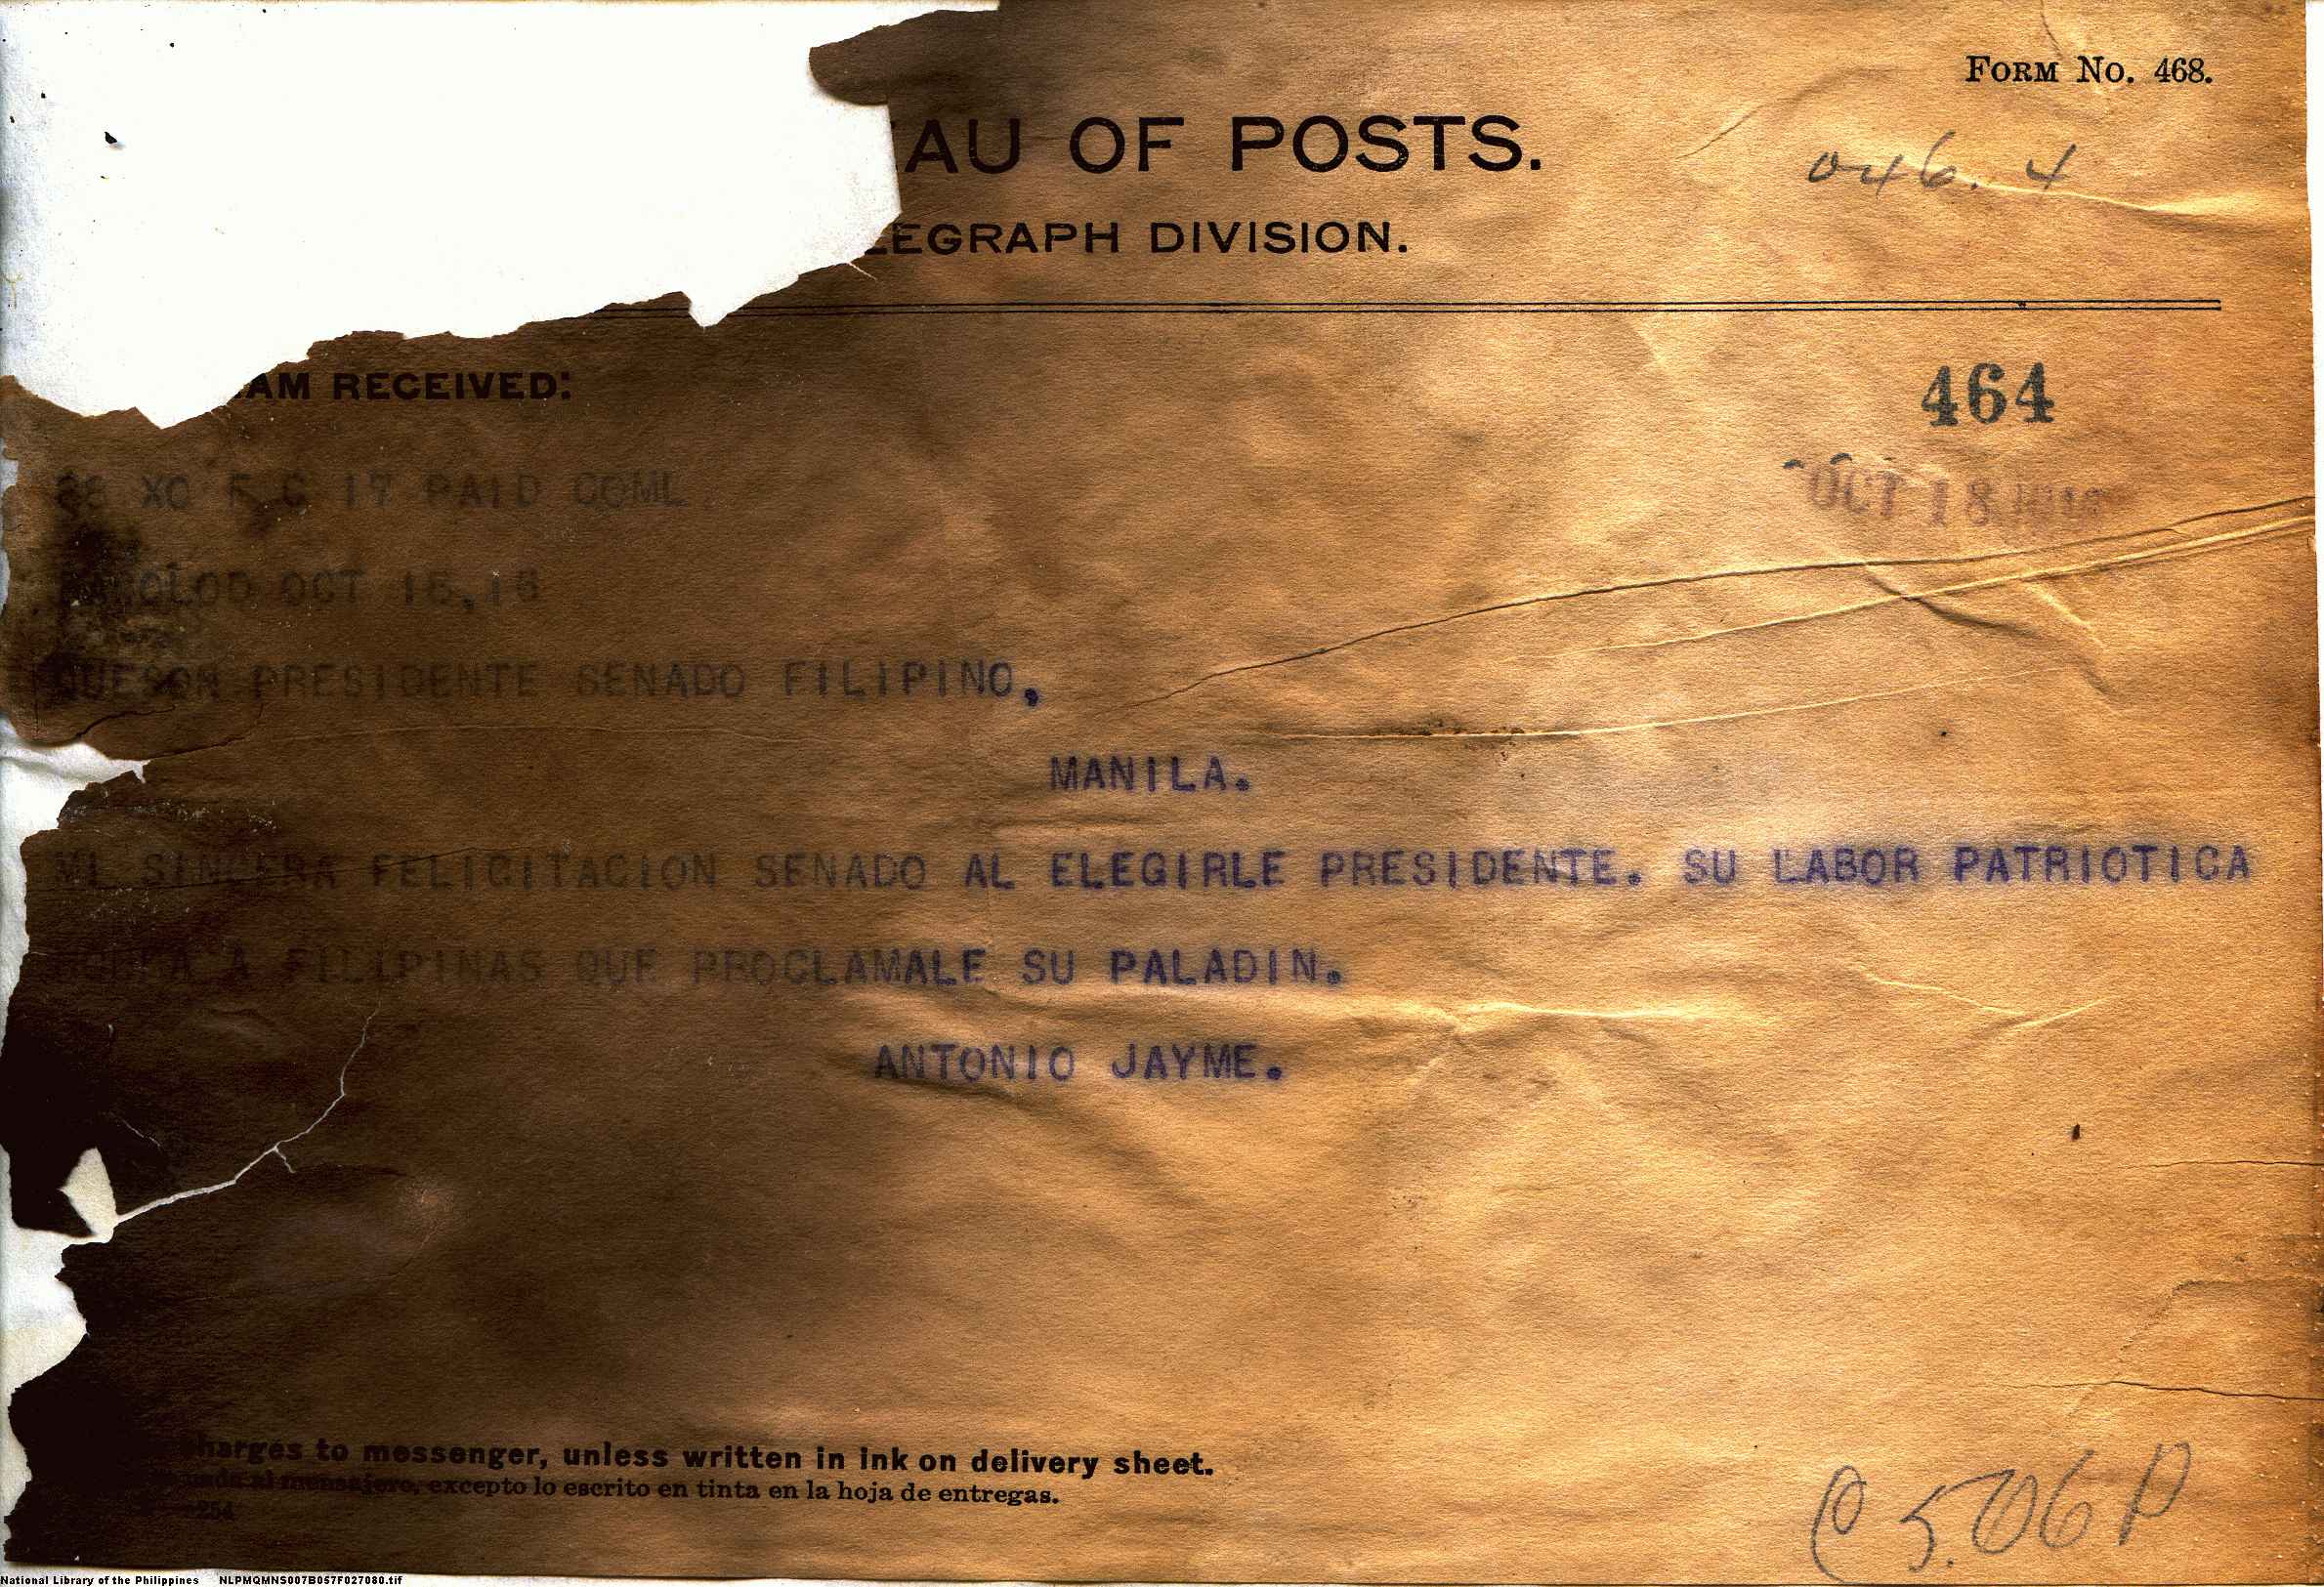 FORM No. 468.
AU OF POSTS.
046. 4
EGRAPH DIVISION.
AM RECEIVED:
464
XC F C 17 PAID COML
OCT 18
OCT 16,16
PRESIDENTE SENADO FILIPINO,
MANILA.
MI SINCERA FELICITACION SENADO AL ELEGIRLE PRESIDENTE. SU LABOR PATRIOTICA
A FILIPINAS QUE PROCLAMALE SU PALADIN.
ANTONIO JAYME.
harges to messenger, unless written in ink on delivery sheet.
al mensajero, excepto lo escrito en tinta en la hoja de entregas.
254
C 5.06 P
National Library of the Philippines NLPMQMNS007B057F027080.tif